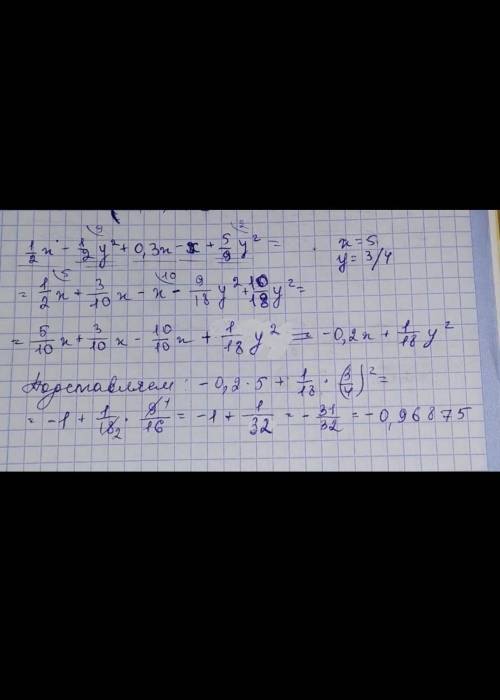 1/2 x - 1/2 y² + 0,3x - x + 5/9 y² = x = 5
y = 3/4
= 1/2 x + 3/10 x - x - 9/18 y² + 10/18 y² =
= 5/10 x + 3/10 x - 10/10 x + 1/18 y² = -0,2x + 1/18 y²
Подставляем: -0,2 · 5 + 1/18 · (3/4)² =
= -1 + 1/18₂ · 9¹/16 = -1 + 1/32 = - 31/32 = -0,96875